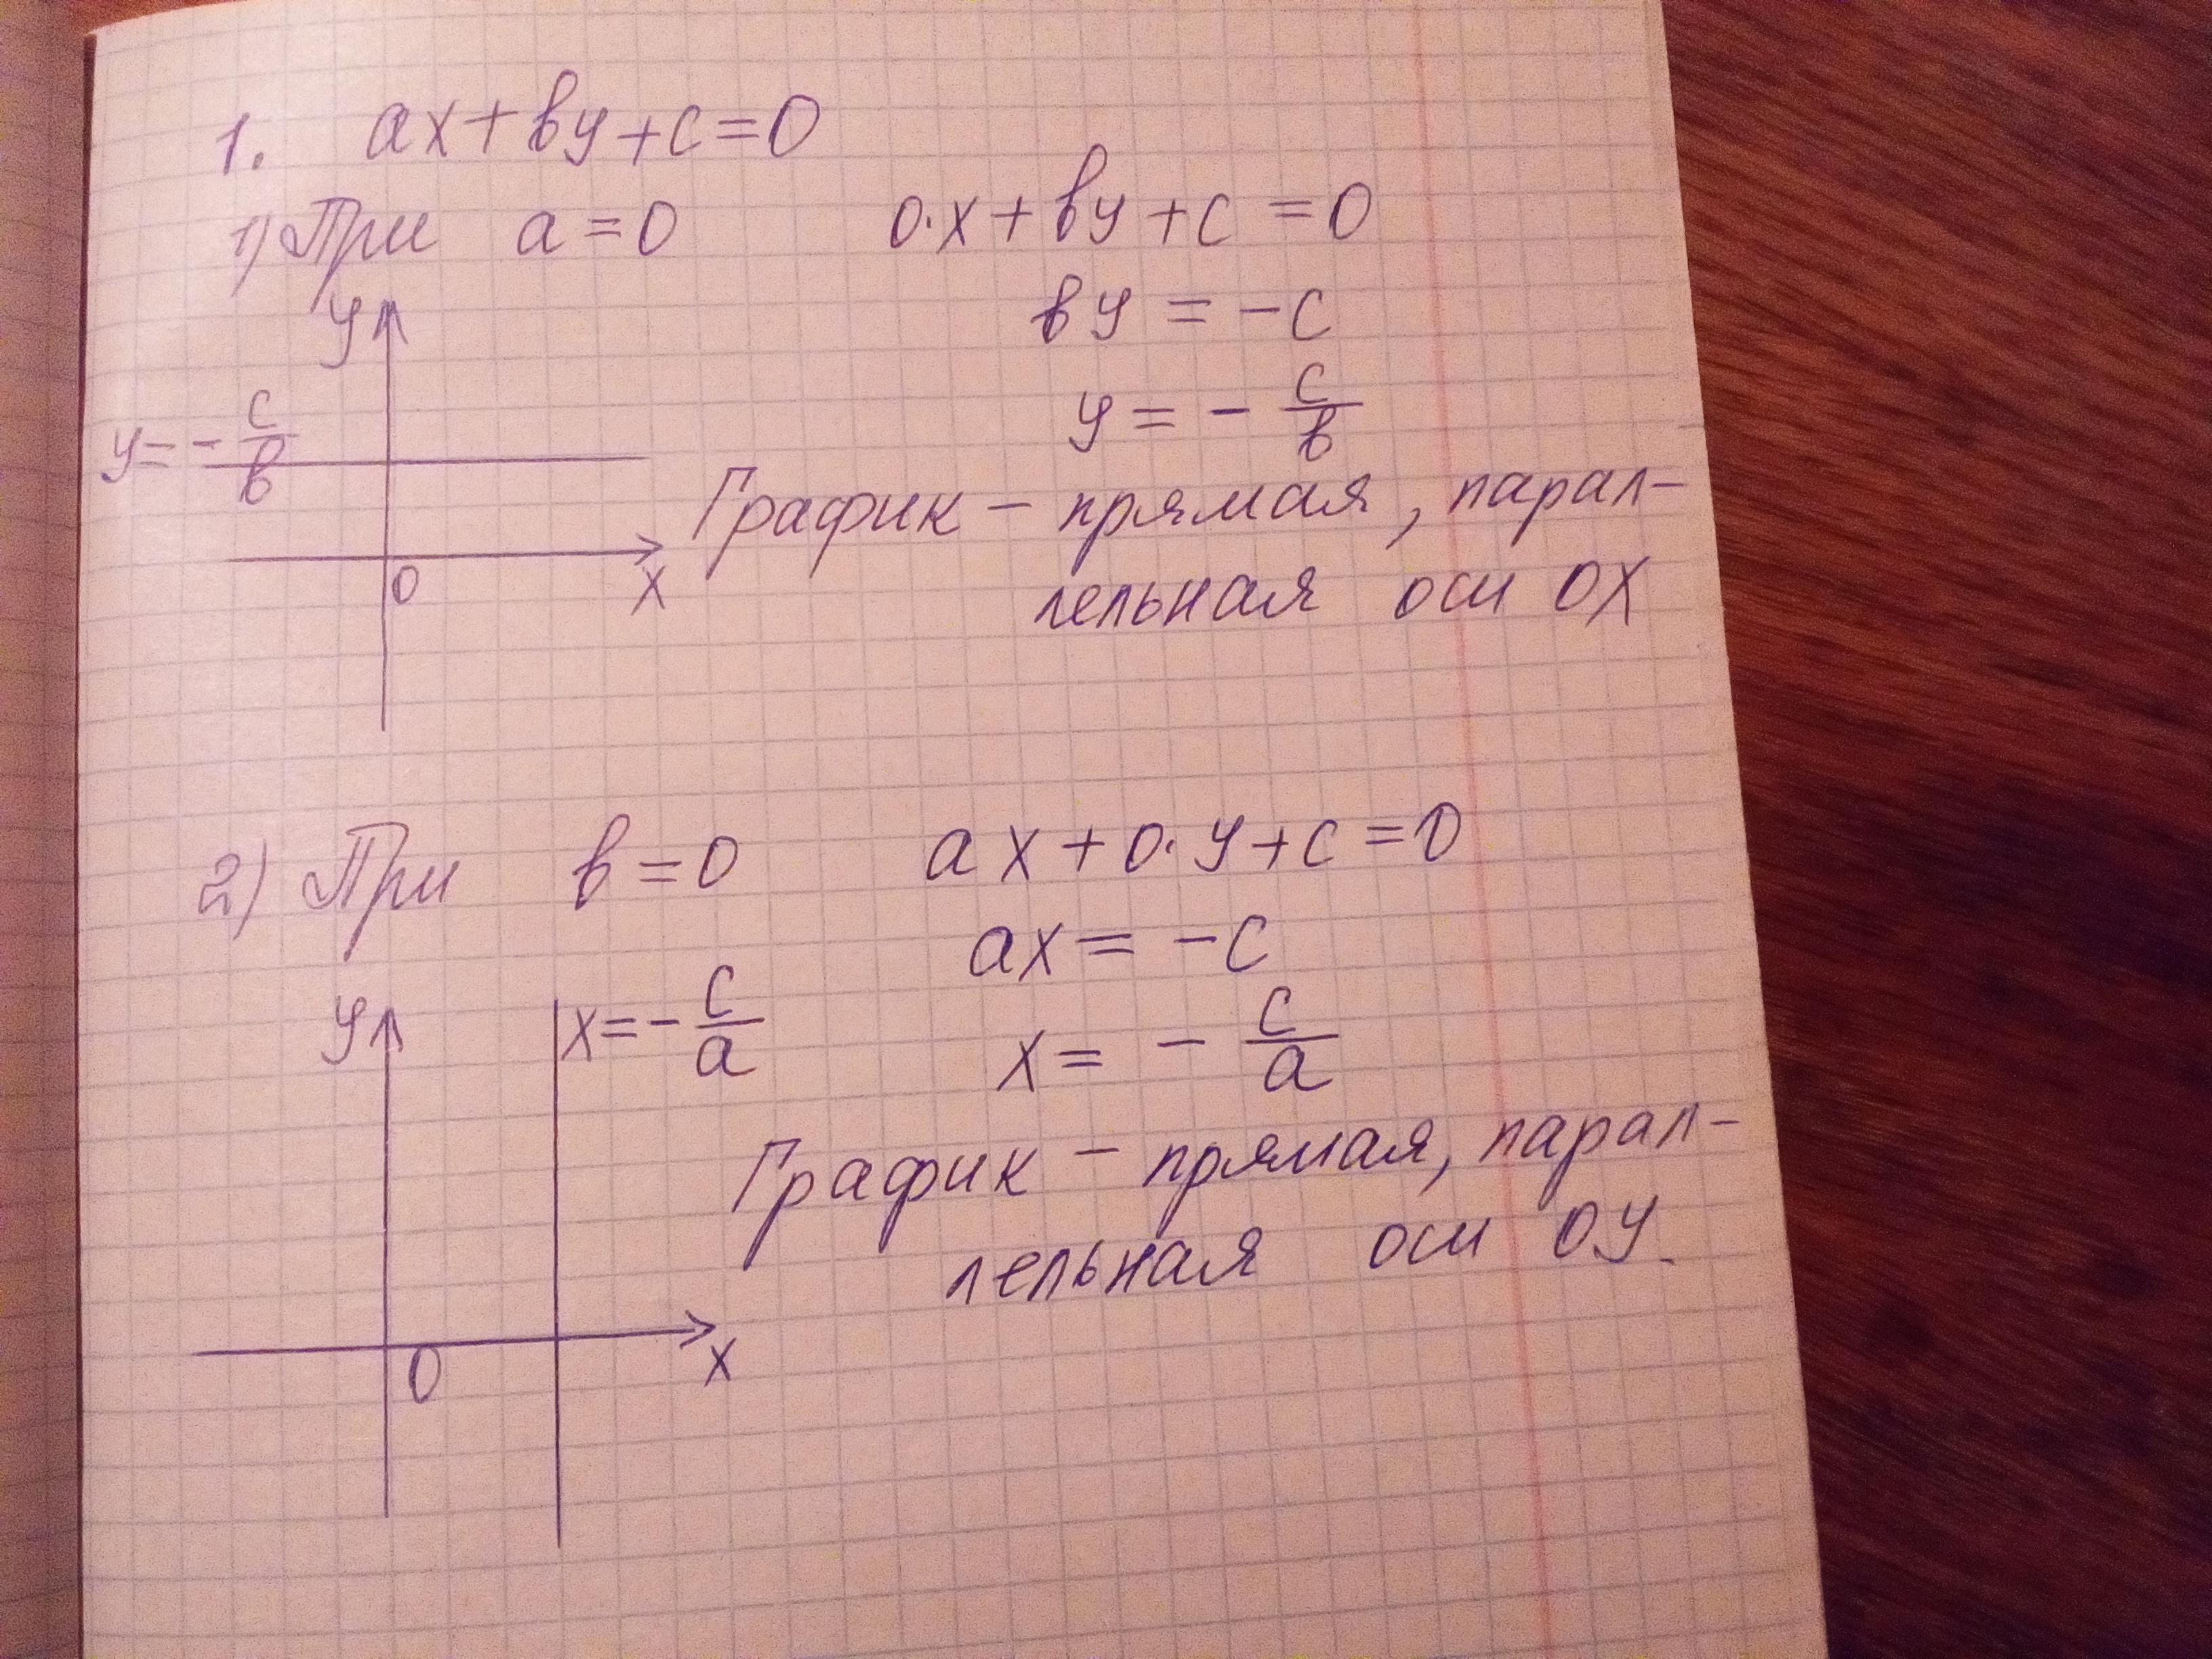 1. ax+вy+c=0
1) При a=0 0·x+вy+c=0
вy=-c
y=-c/в
y
y=-c/в
График - прямая, парал-
лельная оси OX
0 x
2) При в=0 ax+0·y+c=0
ax=-c
x=-c/a
y
x=-c/a
График - прямая, парал-
лельная оси OY.
0 x